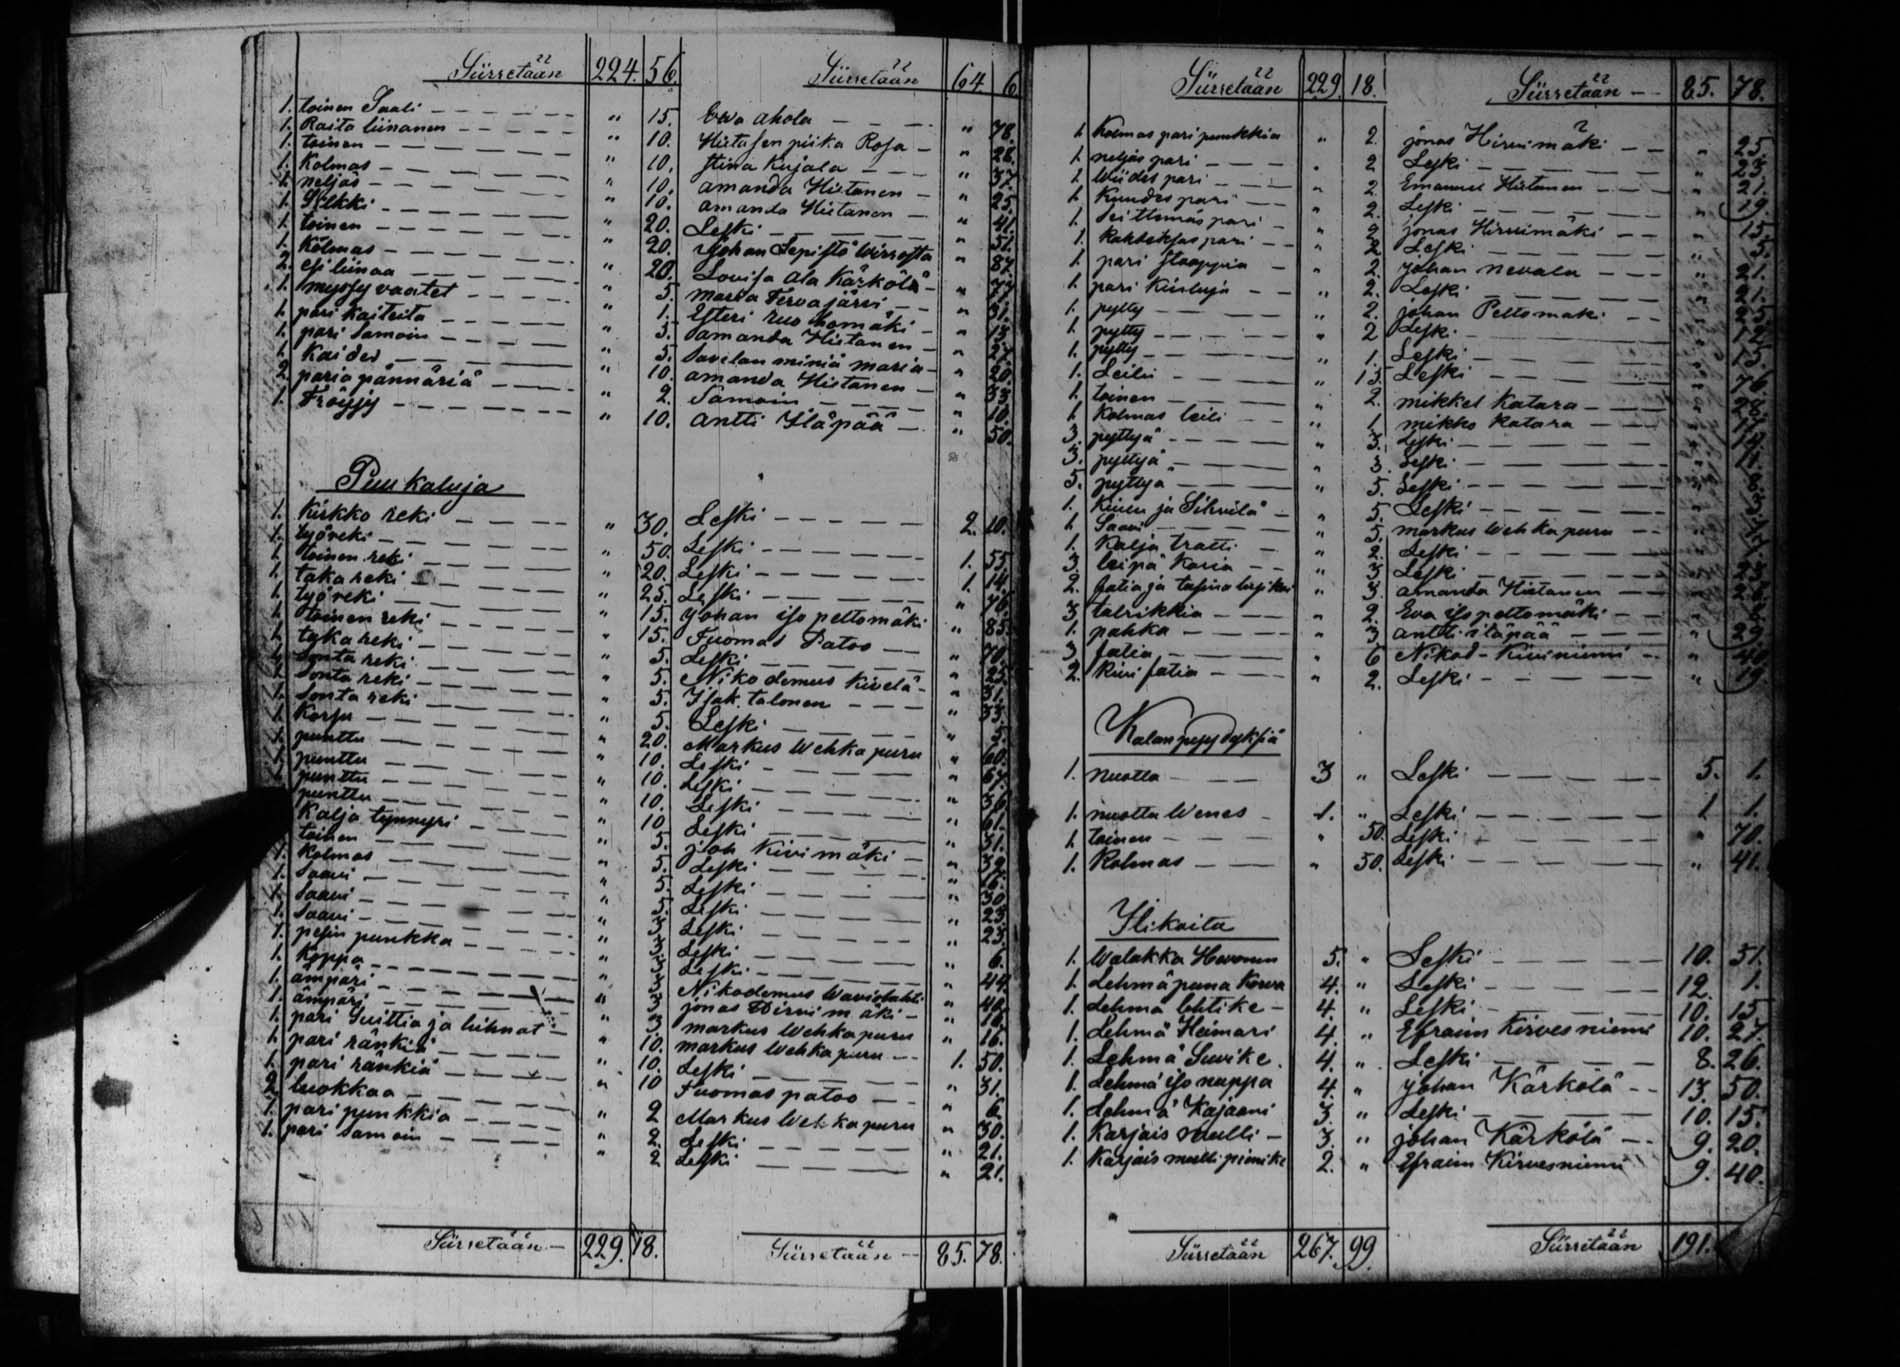 Siirretään 224. 56. Siirretään 64 6
1. toinen Saali " 15. Ewa ahola " 78.
1. Raita liinanen " 10. Hietasen piika Rosa " 26.
1. toinen " 10. Stina Kujala " 37.
1. Kolmas " 10. amanda Hietanen " 25.
1. neljäs " 10. amanda Hietanen " 41.
1. Silkki " 20. Leski " 51.
1. toinen " 20. Johan Sepistö Wirrosta " 87.
1. Kolmas " 20. Lovisa ala Kärkölä "
2. esiliinaa " 5. maria Tervajärvi " 31.
1. myssy vaatet " 1. Esteri ruohomäki " 13.
1. pari kaitsita " 5. amanda Hietanen " 27.
1. pari Samoin " 5. Savelan miniä maria " 20.
1. Kaides " 10. amanda Hietanen " 33.
2. paria pännäriä " 2. Samoin " 10.
1. Tröyjy " 10. antti Yläpää " 50.
Puukaluja
1. kirkko reki " 30. Leski 2. 10.
1. työreki " 50. Leski 1. 55.
1. toinen reki " 20. Leski 1. 14.
1. taka reki " 25. Leski " 76.
1. työreki " 15. Johan iso peltomäki " 85.
1. toinen reki " 15. Tuomas Patoo " 70.
1. tyka reki " 5. Leski " 25.
1. Sonta reki " 5. Nikodemus Kivelä " 31.
1. Sonta reki " 5. Isak talonen " 33.
1. Sonta reki " 5. Leski " 5.
1. Korsu " 20. Markus Wehkapuru " 60.
1. punttu " 10. Leski " 67.
1. punttu " 10. Leski " 36.
1. punttu " 10. Leski " 61.
punttu " 10. Leski " 31.
Kalja tynnyri " 5. joh Kivimäki " 39.
toinen " 5. Leski " 16.
1. Kolmas " 5. Leski " 30.
1. Saavi " 5. Leski " 23.
1. Saavi " 3. Leski " 23.
1. Saavi " 3. Leski " 6.
1. pesin punkka " 3. Leski " 44.
1. Koppa " 3. Nikodemus Waviolahti " 40.
1. ämpäri " 3. jonas Hirvimäki " 10.
1. ämpäri " 3. markus Wehkapuru " 16.
1. pari Suittia ja liihnat " 10. markus Wehkapuru 1. 50.
1. pari ränkiä " 10. Leski " 31.
1. pari ränkiä " 10 Tuomas patoo " 6.
2. luokkaa " 2 Markus Wehkapuru " 30.
1. pari punkkia " 2. Leski " 21.
1. pari Samoin " 2 Leski " 21.
Siirretään 229. 18. Siirretään 85. 78.
Siirretään 229. 18. Siirretään 85. 78.
1. Kolmas pari punkkia " 2. jonas Hirvimäki " 25.
1. neljäs pari " 2 Leski " 23.
1. Wiides pari " 2. Emanuel Hietanen " 21.
1. Kuudes pari " 2. Leski " 19.
1. Seittemäs pari " 2 jonas Hirvimäki " 15.
1. kahdeksas pari " 2 Leski " 5.
1. pari Staappia " 2. Johan nevala " 21.
1. pari Kiisluja " 2. Leski " 21.
1. pytty " 2. johan Peltomäki " 25.
1. pytty " 2 Leski " 12.
1. pytty " 1. Leski " 15.
1. Leili " 15. Leski " 76.
1. toinen " 2. mikkel Katara " 28.
1. Kolmas leili " 1. mikko katara "
3. pyttyä " 3. Leski "
3. pyttyä " 3. Leski "
5. pyttyä " 5. Leski "
1. Kiulu ja Siivilä " 5. Leski "
1. Saavi " 5. markus Wehkapuru "
1. Kalja tratti " 2. Leski "
3. leipä Koria " 3 Leski "
2. fatia ja " 3. amanda Hietanen "
3. talrikkia " 2. Eva iso peltomäki "
1. pahka " 3 antti iläpää " 29.
3. fatia " 6 Nikod-Kiviniemi " 40.
2. Kivi fatia " 2. Leski " 19.
Kalanpyydyksiä
1. nuotta 3 " Leski 5. 1.
1. nuotta Wenes 1. " Leski 1 1.
1. toinen " 50. Leski " 70.
1. Kolmas " 50. Leski " 41.
Ilikoita
1. Walakka Hevonen 5. " Leski 10. 51.
1. Lehmä puna Korva 4. " Leski 12. 1.
1. Lehmä lehtike 4. " Leski 10. 15.
1. Lehmä Heinari 4. " Efraim Kirvesniemi 10. 27.
1. Lehmä Suvike 4. " Leski 8. 26.
1. Lehmä iso nappa 4. " Johan Kärkölä 13. 50.
1. Lehmä Kajaani 3. " Leski 10. 15.
1. Karjais mulli 3. " johan Kärkölä 9. 20.
1. Karjais mulli pimike 2. " Efraim Kirvesniemi 9. 40.
Siirretään 267. 99. Siirretään 191.